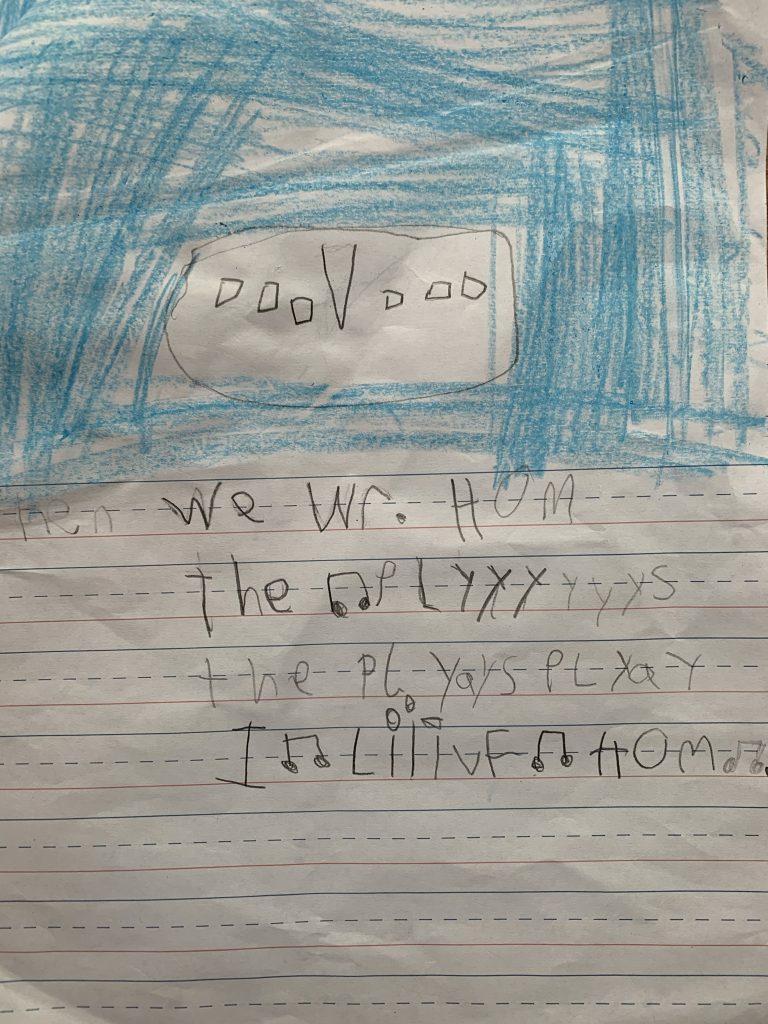 then We Wr. HOM
the ♫ PLYYYYYYYS
the PL YayS PL YaY
I ♫ LiiiVF ♫ HOM ♫